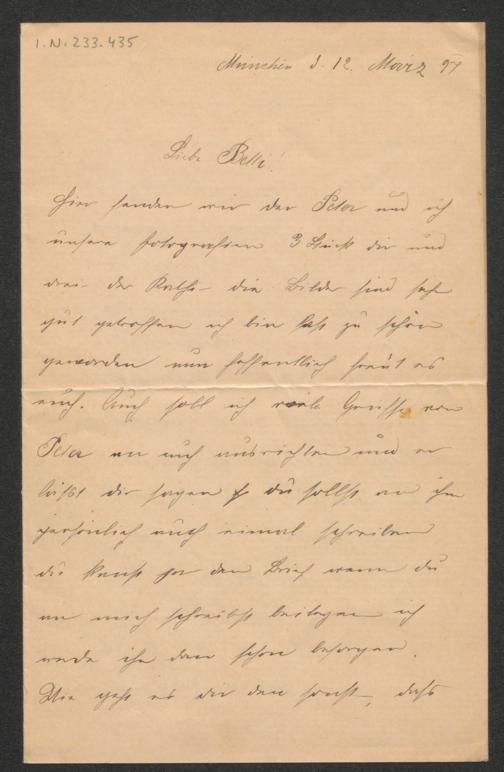 I.N. 233.435
München d. 12. März 97
Liebe Betti!
Hier senden wir der Peter und ich
unsere Fotografien 3 Stück dir und
drei der Kathi die Bilder sind sehr
gut getroffen ich bin fast zu schön
geworden nun hoffentlich freut es
euch. Auch soll ich viele Grüsse von
Peter an euch ausrichten und er
läßt dir sagen du sollst an ihn
persönlich auch einmal schreiben
du kanst ja den Brief wenn du
an mich schreibst beilegen ich
werde ihn dann schon besorgen.
Wie geht es dir den sonst, daß